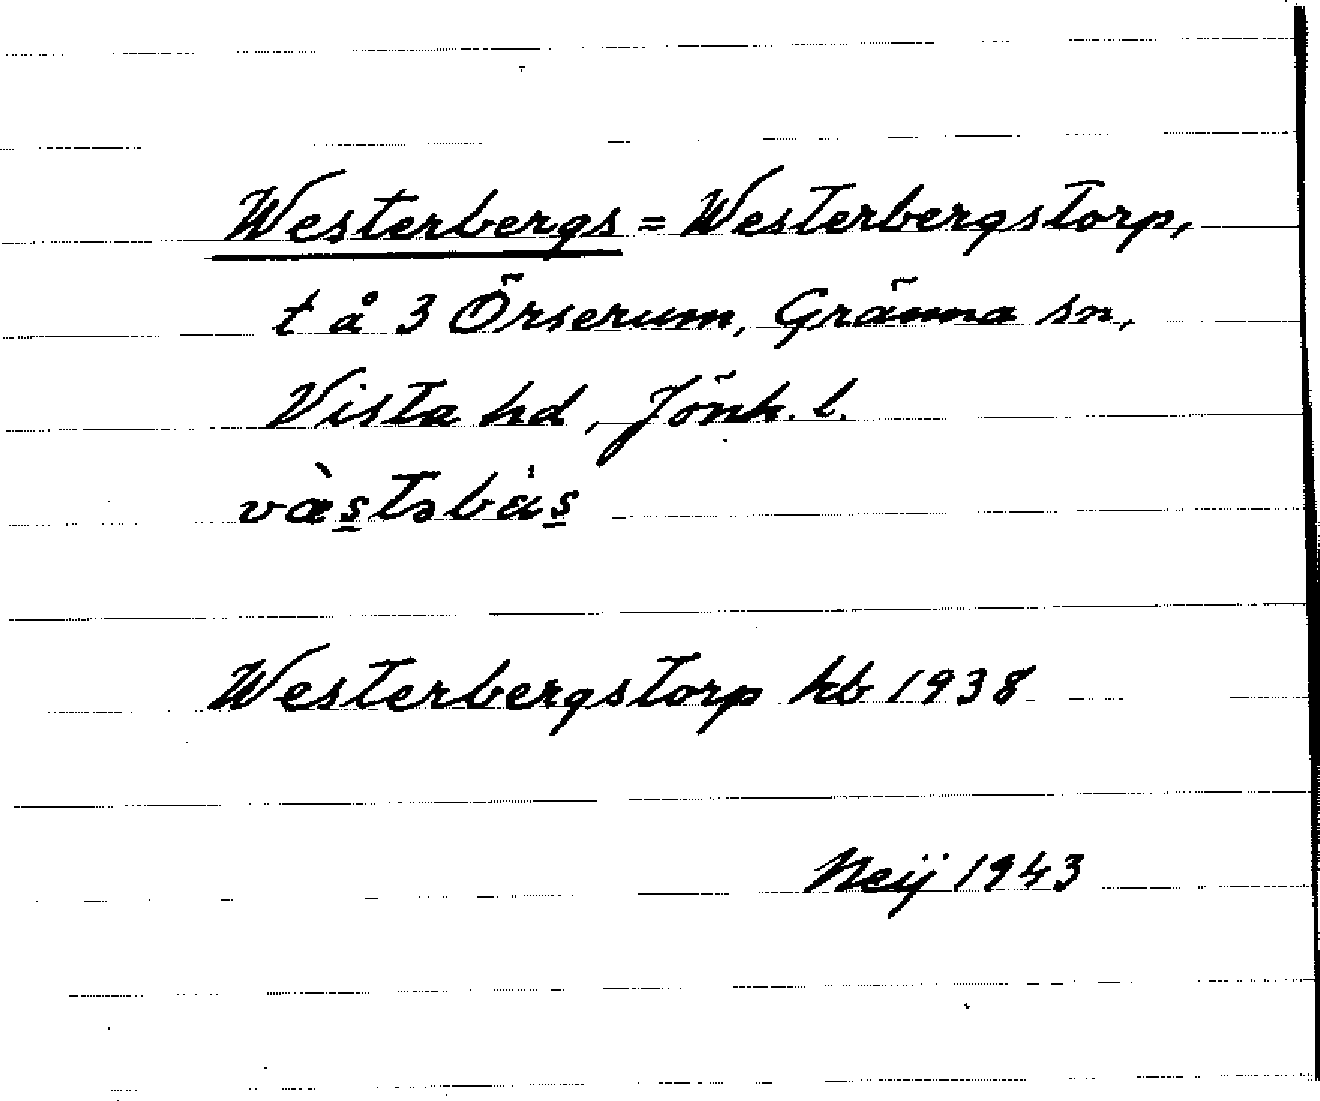 Westerbergs = Westerbergstorp,
t å 3 Örserum, Gränna sn,
Vista hd, Jönk. l.
Westerbergstorp kb 1938
Neij 1943